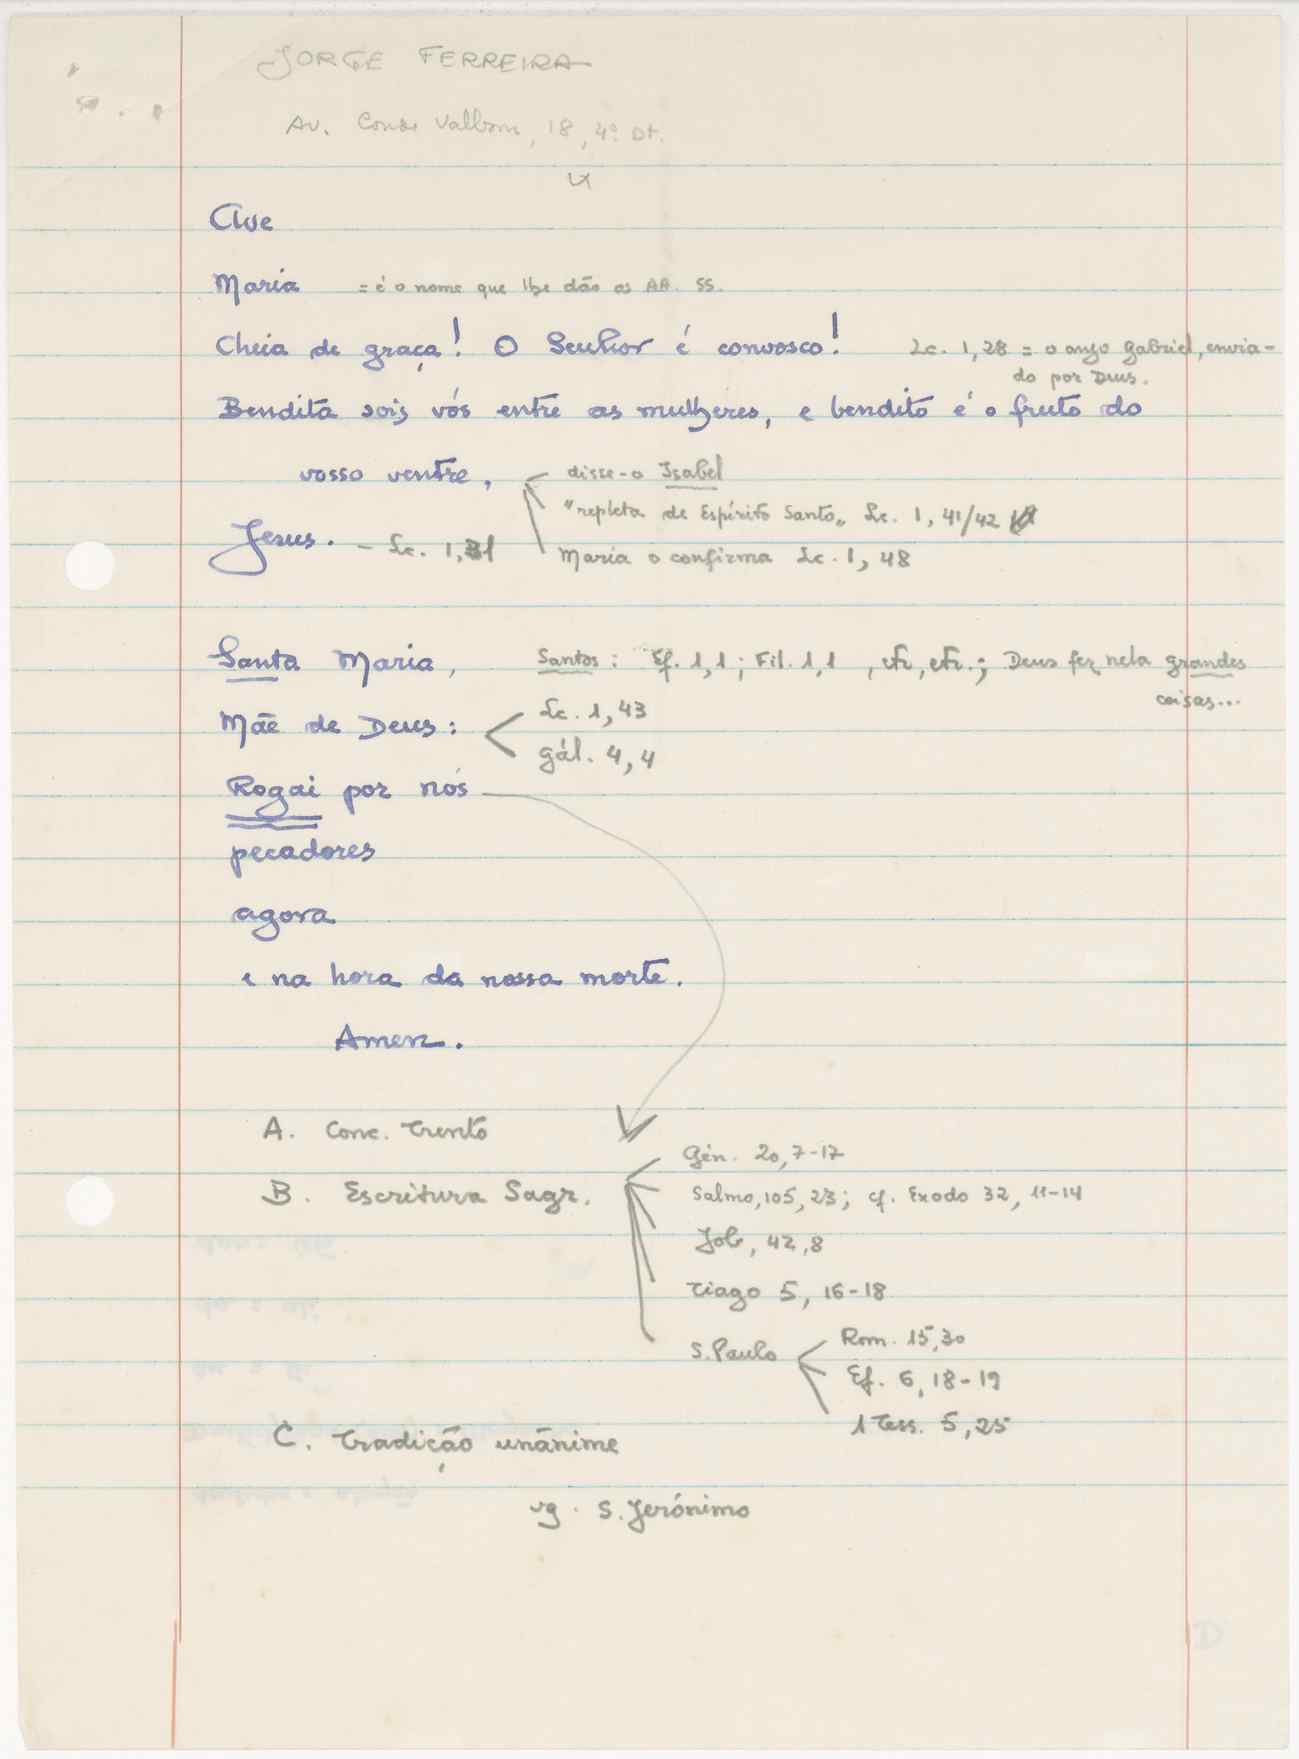 JORGE FERREIRA
Av. Conde Valbom, 18, 4º Dt.
Ave
Maria = é o nome que lhe dão os AA. SS.
Cheia de graça! O Senhor é convosco! Lc. 1,28 = o anjo Gabriel, envia-
do por Deus.
Bendita sois vós entre as mulheres, e bendito é o fruto do
vosso ventre, disse-o Isabel
"repleta de Espírito Santo„ Lc. 1, 41/42
Jesus. - Lc. 1,31
Maria o confirma Lc. 1, 48
Santa Maria, Santos: Ef. 1,1; Fil. 1,1, etc, etc.; Deus fez nela grandes
coisas...
Mãe de Deus: Lc. 1, 43
Gál. 4, 4
Rogai por nós
pecadores
agora
e na hora da nossa morte.
Amen.
A. Conc. Trento
Gén. 20, 7-17
B. Escritura Sagr. Salmo, 105, 23; cf. Exodo 32, 11-14
Job, 42, 8
Tiago 5, 16-18
S. Paulo Rom. 15, 30
Ef. 6, 18-19
1 Tess. 5, 25
C. Tradição unânime
vg. S. Jerónimo